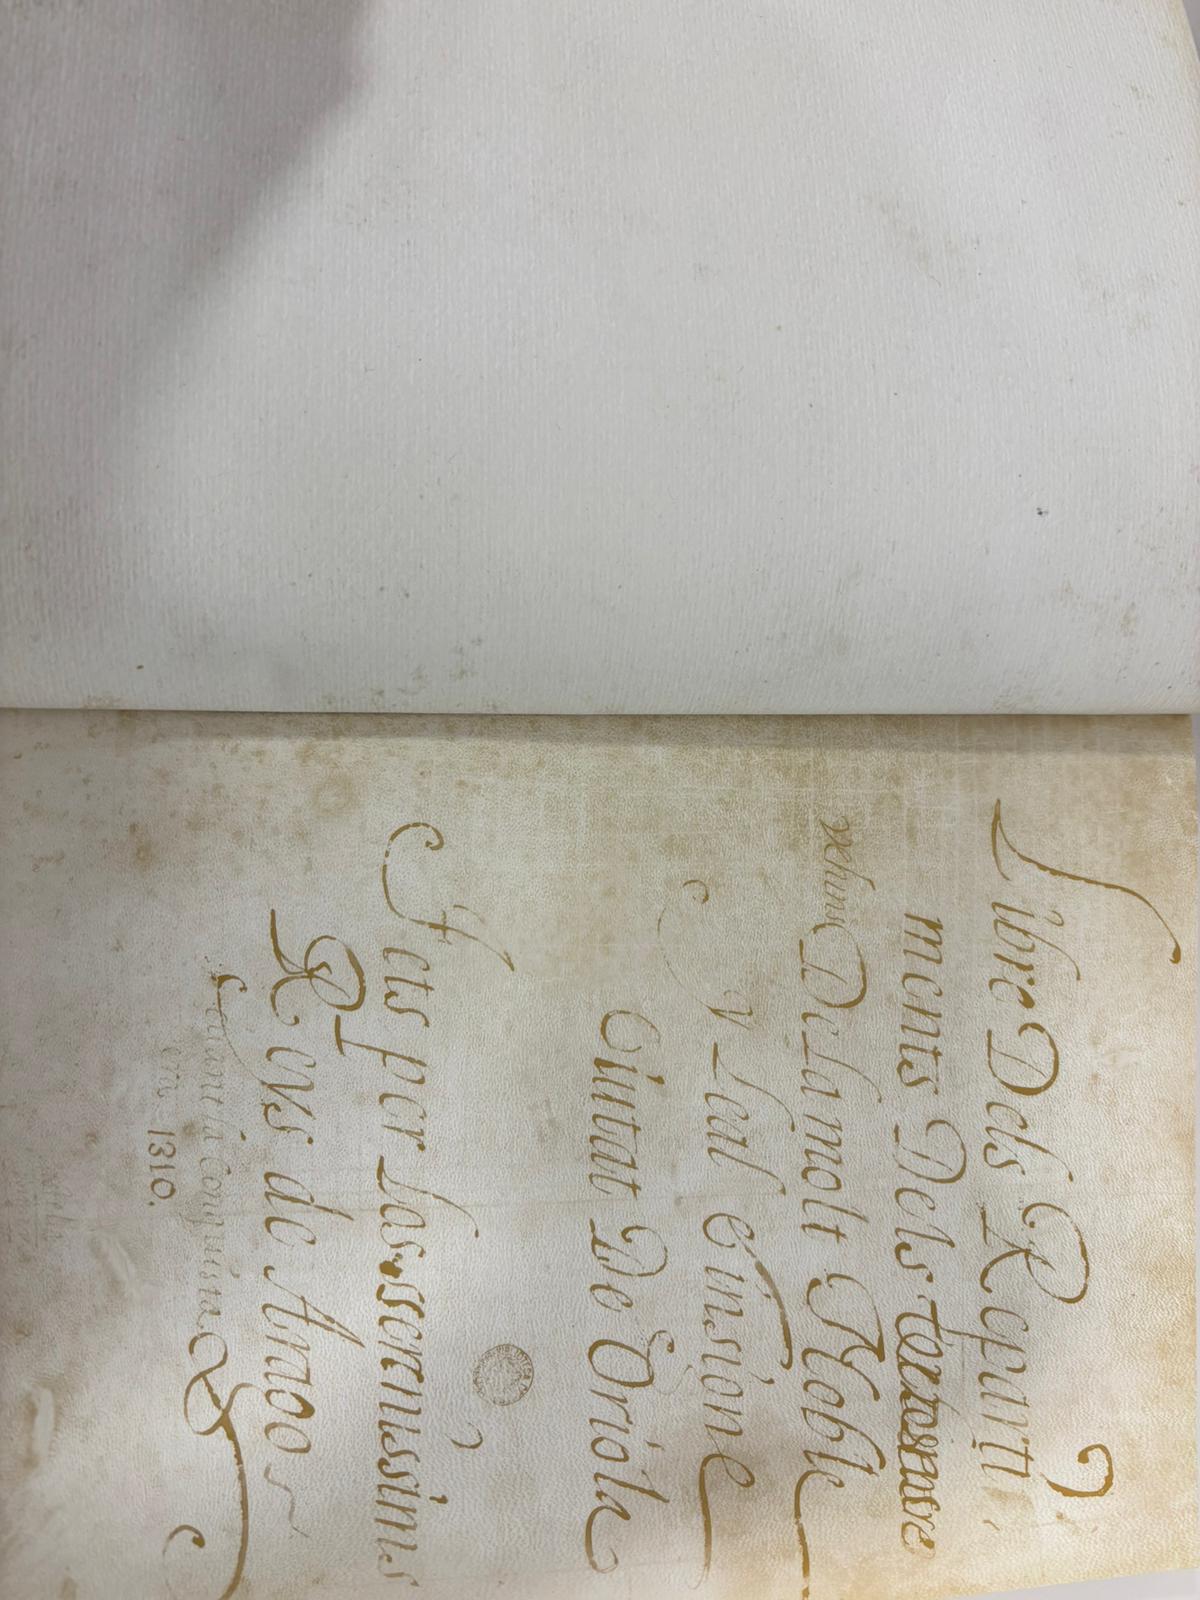 Libre Dels Reparti,
ments Dels
vehins De La molt Noble
y Leal E insigne
Ciutat De Oriola
Fets per Los sereníssims
Reys de Arago
Segons la Conquista
era 1310.